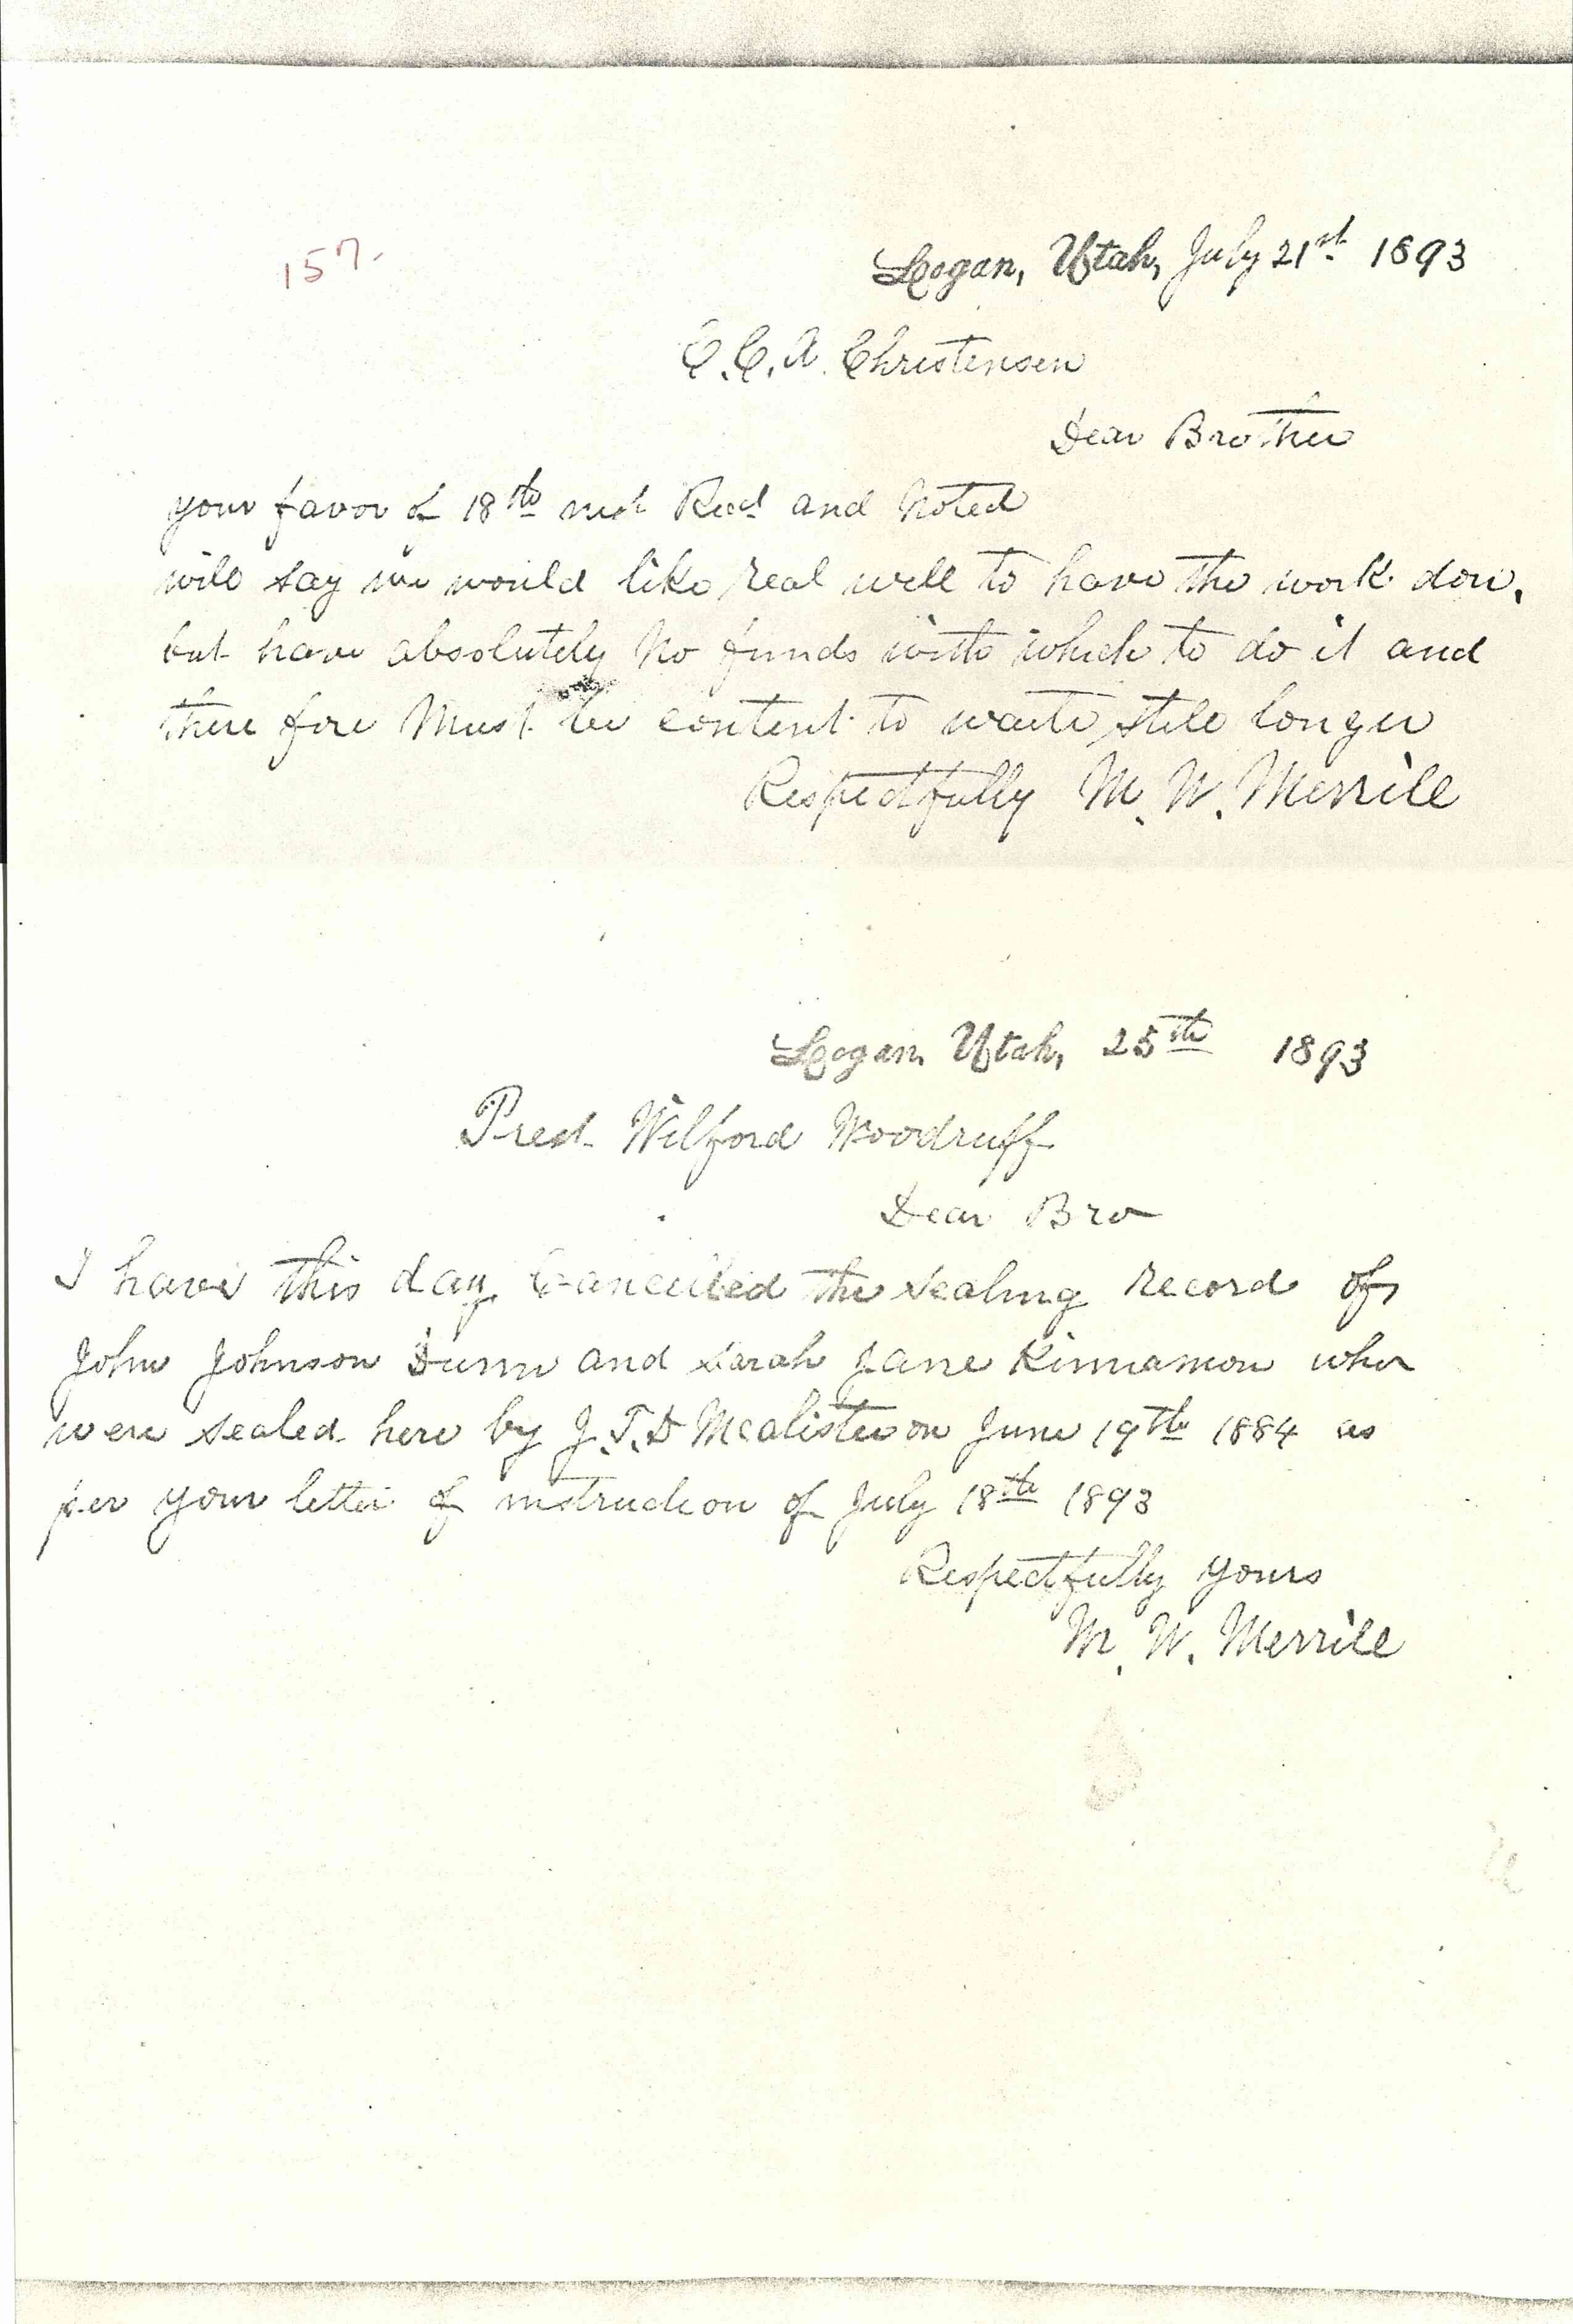 157.
Logan, Utah, July 21st 1893
C. C. A. Christensen
Dear Brother
your favor of 18th inst Recd and Noted
will say we would like real well to have the work don,
but have absolutely No funds with which to do it and
there fore Must be content to waite still longer
Respectfully M. W. Merrill
Logan Utah, 25th 1893
Prest Wilford Woodruff
Dear Bro
I have this day Cancelled the sealing record of
John Johnson Dunn and Sarah Jane Kinnamon who
were sealed here by J. T. D Mcalister on June 19th 1884 as
per your letter of instruction of July 18th 1893
Respectfully yours
M. W. Merrill